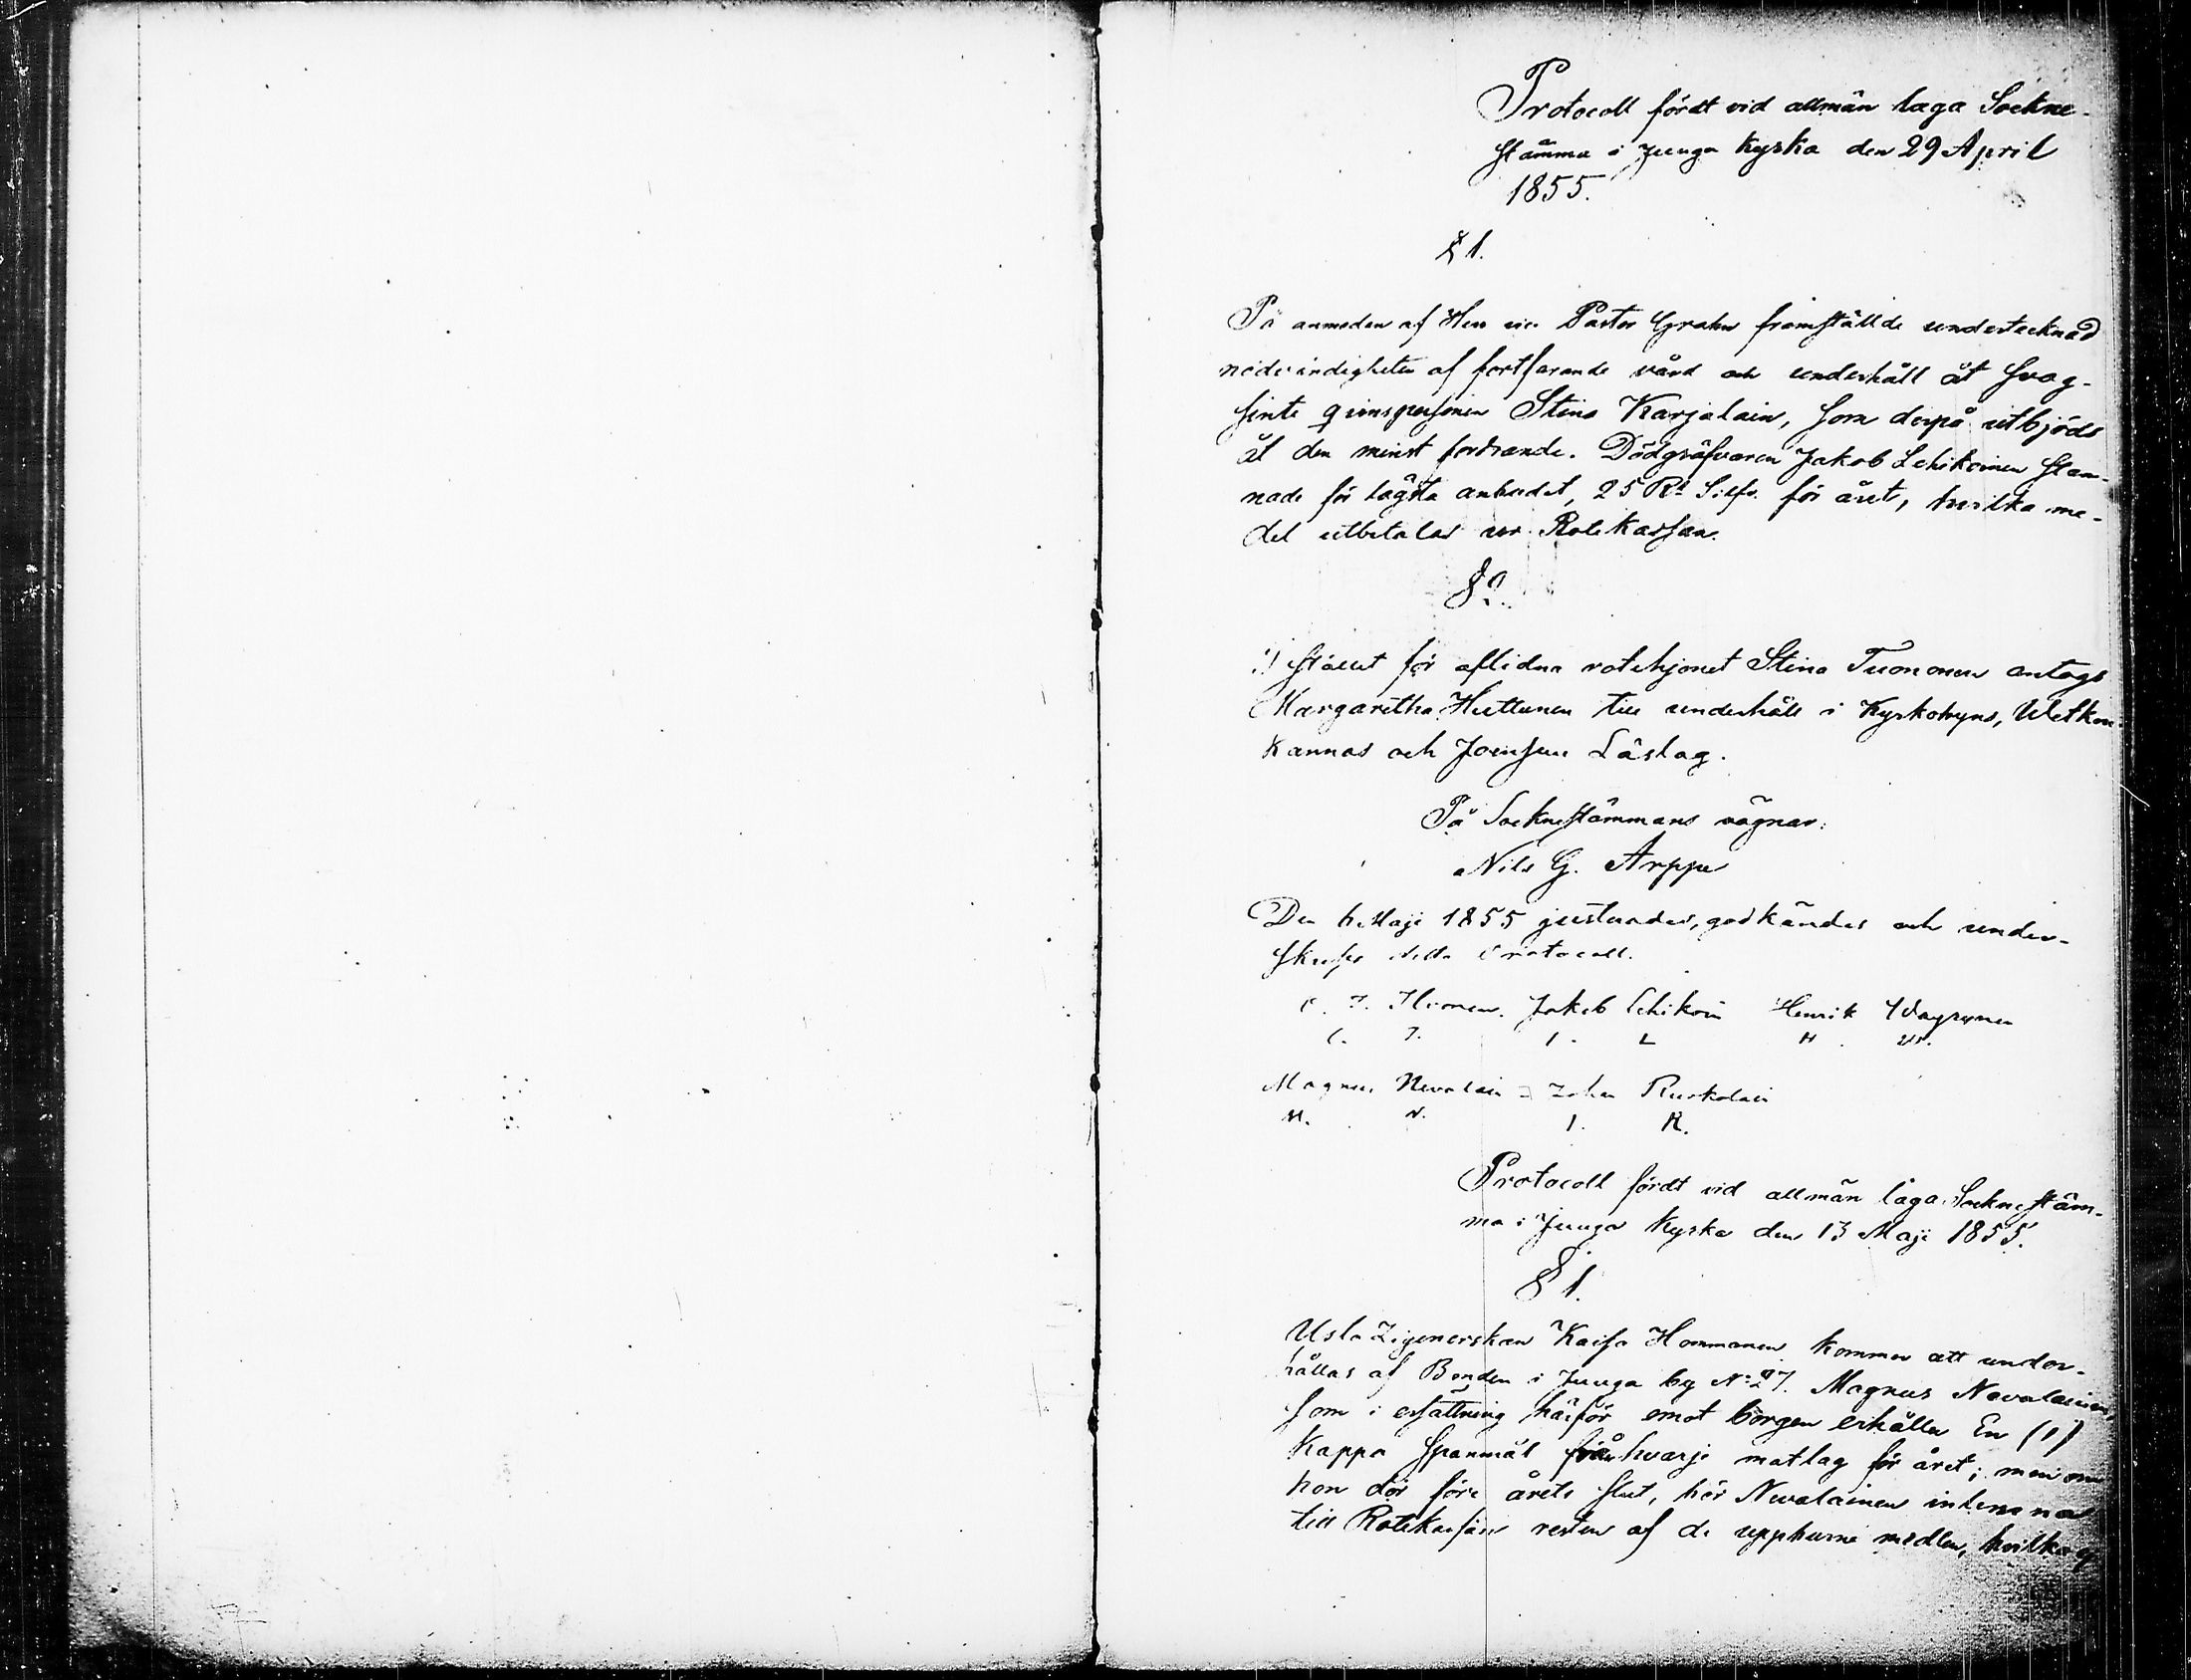 Protocoll fördt vid allmän laga Sockne-
stämma i Juuga Kyrka den 29 April
1855.
§ 1.
På anmodan af Herr vice Pastor Grahn framställde undertecknad
nödvändigheten af fortfarande vård och underhåll åt svag-
sinte qvinspersonen Stina Karjalain, som derpå utbjöds
åt den minst fordrande. Dödgräfvaren Jakob Lehikoinen stan-
nade för lägsta anbudet, 25 Rl Silfr. för året, hvilka me-
del utbetalas ur Rotekassan.
§ 2.
I stället för aflidna rotehjonet Stina Tuononen antogs
Margaretha Huttunen till underhåll i Kyrkobyns,
Kannas och Joensuu Läslag.
På Socknestämmans vägnar:
Nils G. Arppe
Den 6 Maji 1855 justerades, godkändes och under-
skrefs detta Protocoll.
C. J. Ilvonen. Jakob Lehikoin Henrik Wäyrynen
C. J. I. L H W.
Magnus Nevalain Johan Ruokolain
M. N. I. R.
Protocoll fördt vid allmän laga Socknestäm-
ma i Juuga Kyrka den 13 Maji 1855.
§ 1.
Usla Zigenerskan Kaisa Hommanen kommer att under-
hållas af Bonden i Juuga by No 27. Magnus Nevalainen,
som i ersättning härför emot borgen erhåller En (1)
Kappa Spanmål från hvarje matlag för året; men om
hon dör före årets slut, bör Nevalainen inlemna
till Rotekassan resten af de uppburne medlen, hvilka